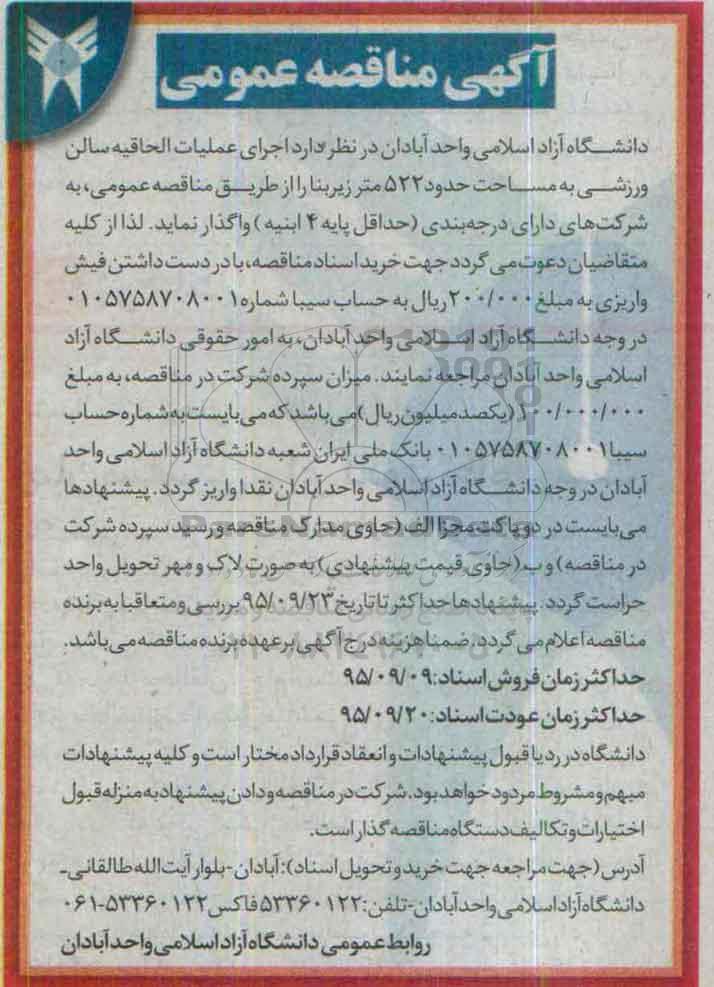 آگهی مناقصه عمومی
دانشگاه آزاد اسلامی واحد آبادان در نظر دارد اجرای عملیات الحاقیه سالن
ورزشی به مساحت حدود ۵۲۲ متر زیربنا را از طریق مناقصه عمومی، به
شرکت‌های دارای درجه‌بندی (حداقل پایه ۴ ابنیه) واگذار نماید. لذا از کلیه
متقاضیان دعوت می گردد جهت خرید اسناد مناقصه، با در دست داشتن فیش
واریزی به مبلغ ۲۰۰/۰۰۰ ریال به حساب سیبا شماره ۰۱۰۵۷۵۸۷۰۸۰۰۱
در وجه دانشگاه آزاد اسلامی واحد آبادان، به امور حقوقی دانشگاه آزاد
اسلامی واحد آبادان مراجعه نمایند. میزان سپرده شرکت در مناقصه، به مبلغ
۱۰۰/۰۰۰/۰۰۰ (یکصد میلیون ریال) می باشد که می بایست به شماره حساب
سیبا ۰۱۰۵۷۵۸۷۰۸۰۰۱ بانک ملی ایران شعبه دانشگاه آزاد اسلامی واحد
آبادان در وجه دانشگاه آزاد اسلامی واحد آبادان نقدا واریز گردد. پیشنهادها
می بایست در دو پاکت مجزا الف (حاوی مدارک مناقصه و رسید سپرده شرکت
در مناقصه) و ب (حاوی قیمت پیشنهادی) به صورت لاک و مهر تحویل واحد
حراست گردد. پیشنهادها حداکثر تا تاریخ ۹۵/۰۹/۲۳ بررسی و متعاقبا به برنده
مناقصه اعلام می گردد. ضمنا هزینه درج آگهی بر عهده برنده مناقصه می باشد.
حداکثر زمان فروش اسناد: ۹۵/۰۹/۰۹
حداکثر زمان عودت اسناد: ۹۵/۰۹/۲۰
دانشگاه در رد یا قبول پیشنهادات و انعقاد قرارداد مختار است و کلیه پیشنهادات
مبهم و مشروط مردود خواهد بود. شرکت در مناقصه و دادن پیشنهاد به منزله قبول
اختیارات و تکالیف دستگاه مناقصه گذار است.
آدرس (جهت مراجعه جهت خرید و تحویل اسناد): آبادان - بلوار آیت الله طالقانی ـ
دانشگاه آزاد اسلامی واحد آبادان - تلفن: ۵۳۳۶۰۱۲۲ فاکس ۵۳۳۶۰۱۲۲-۰۶۱
روابط عمومی دانشگاه آزاد اسلامی واحد آبادان